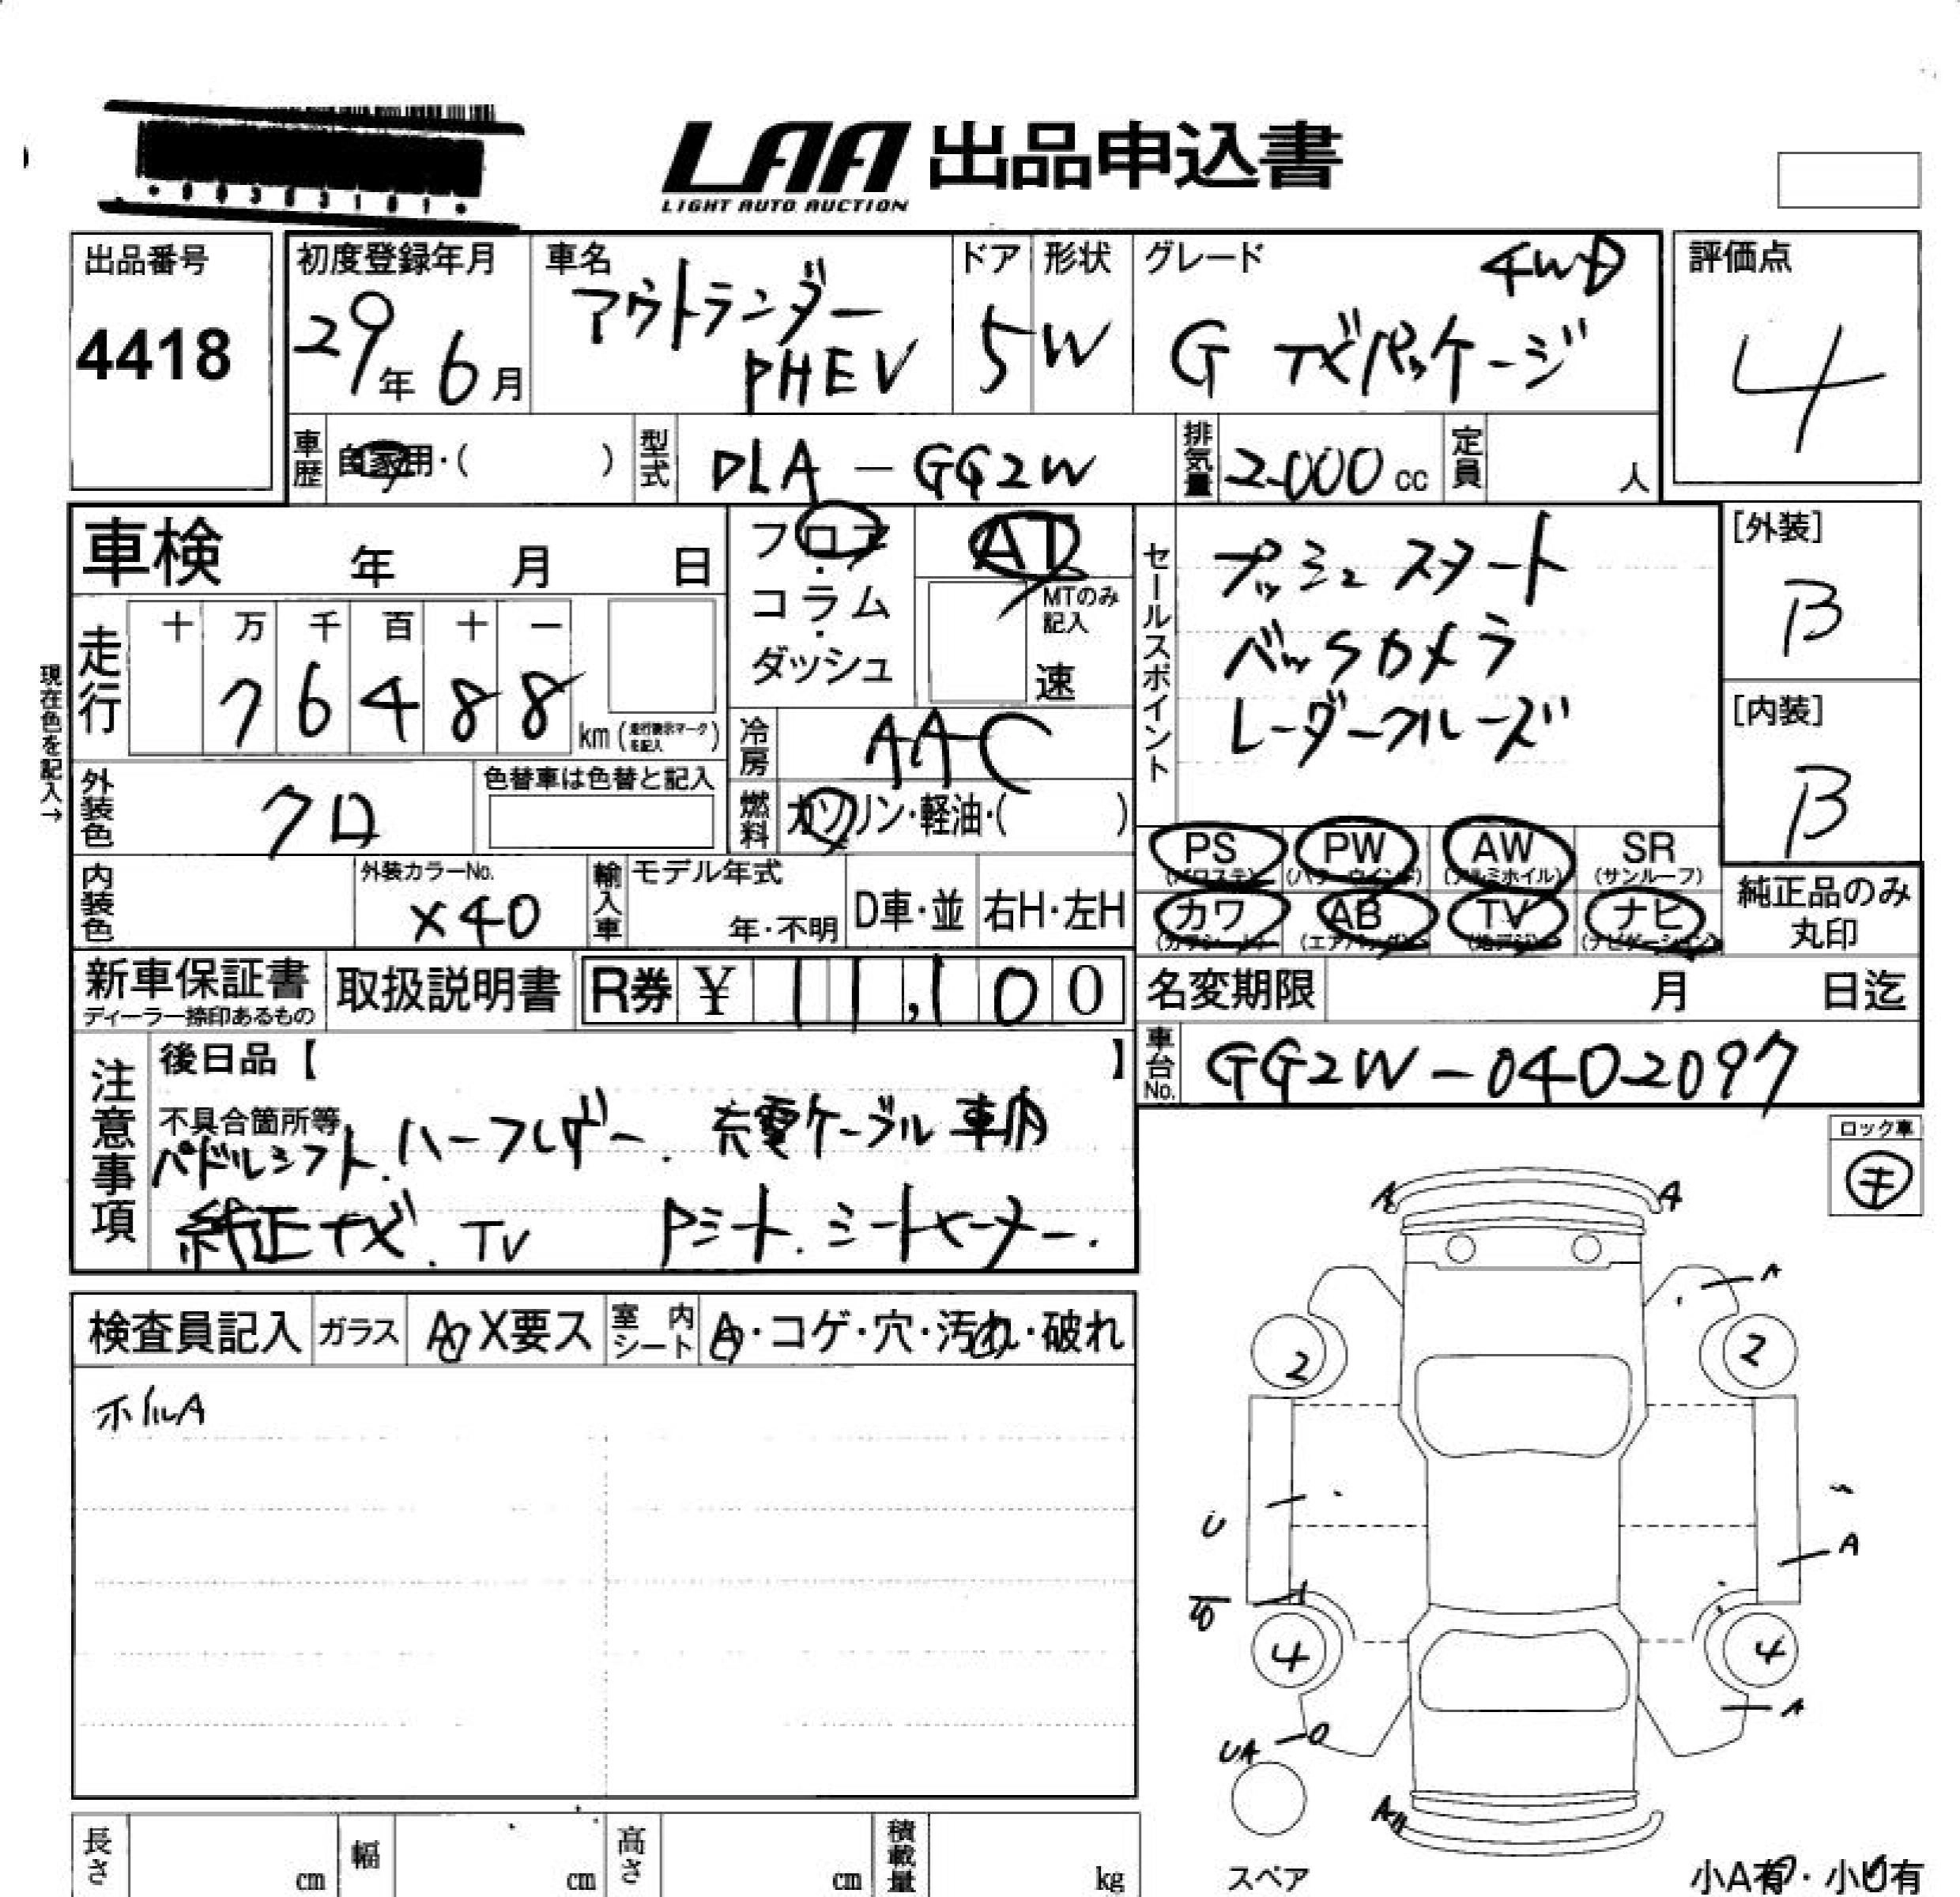 LAA 出品申込書
LIGHT AUTO AUCTION
出品番号
4418
初度登録年月
29年 6月
車名
アウトランダー
PHEV
ドア
5
形状
W
グレード
4WD
G ナビパッケージ
評価点
4
車歴
自家用・( )
型式
DLA-GG2W
排気量
2000cc
定員
人
車検 年 月 日
フロア
コラム
ダッシュ
AT
MTのみ
記入
速
セールスポイント
プッシュスタート
バックカメラ
レーダークルーズ
[外装]
B
[内装]
B
現在色を記入→
走行
十 万 千 百 十 一
7 6 4 8 8
km(走行表示マークを記入)
冷房
AAC
燃料
ガソリン・軽油・( )
外装色
クロ
色替車は色替と記入
内装色
外装カラーNo.
X40
輸入車
モデル年式
年・不明
D車・並
右H・左H
PS
(パワステ)
PW
(パワーウインド)
AW
(アルミホイル)
SR
(サンルーフ)
カワ
(カワシート)
AB
(エアバッグ)
TV
(地デジ)
ナビ
(ナビゲーション)
純正品のみ
丸印
新車保証書
ディーラー捺印あるもの
取扱説明書
R券 ¥ 11,100
名変期限 月 日迄
車台No.
GG2W-0402097
注意事項
後日品【 】
不具合箇所等
パドルシフト.ハーフレザー.充電ケーブル車内
純正ナビ.TV Pシート.シートヒーター.
ロック車
キ
検査員記入
ガラス
A X要ス
室内シート
A・コゲ・穴・汚れ・破れ
ホイルA
A A
A
2 2
U
A
4 4
A
UA
A
スペア
小A有・小U有
長さ cm
幅 cm
高さ cm
積載量 kg